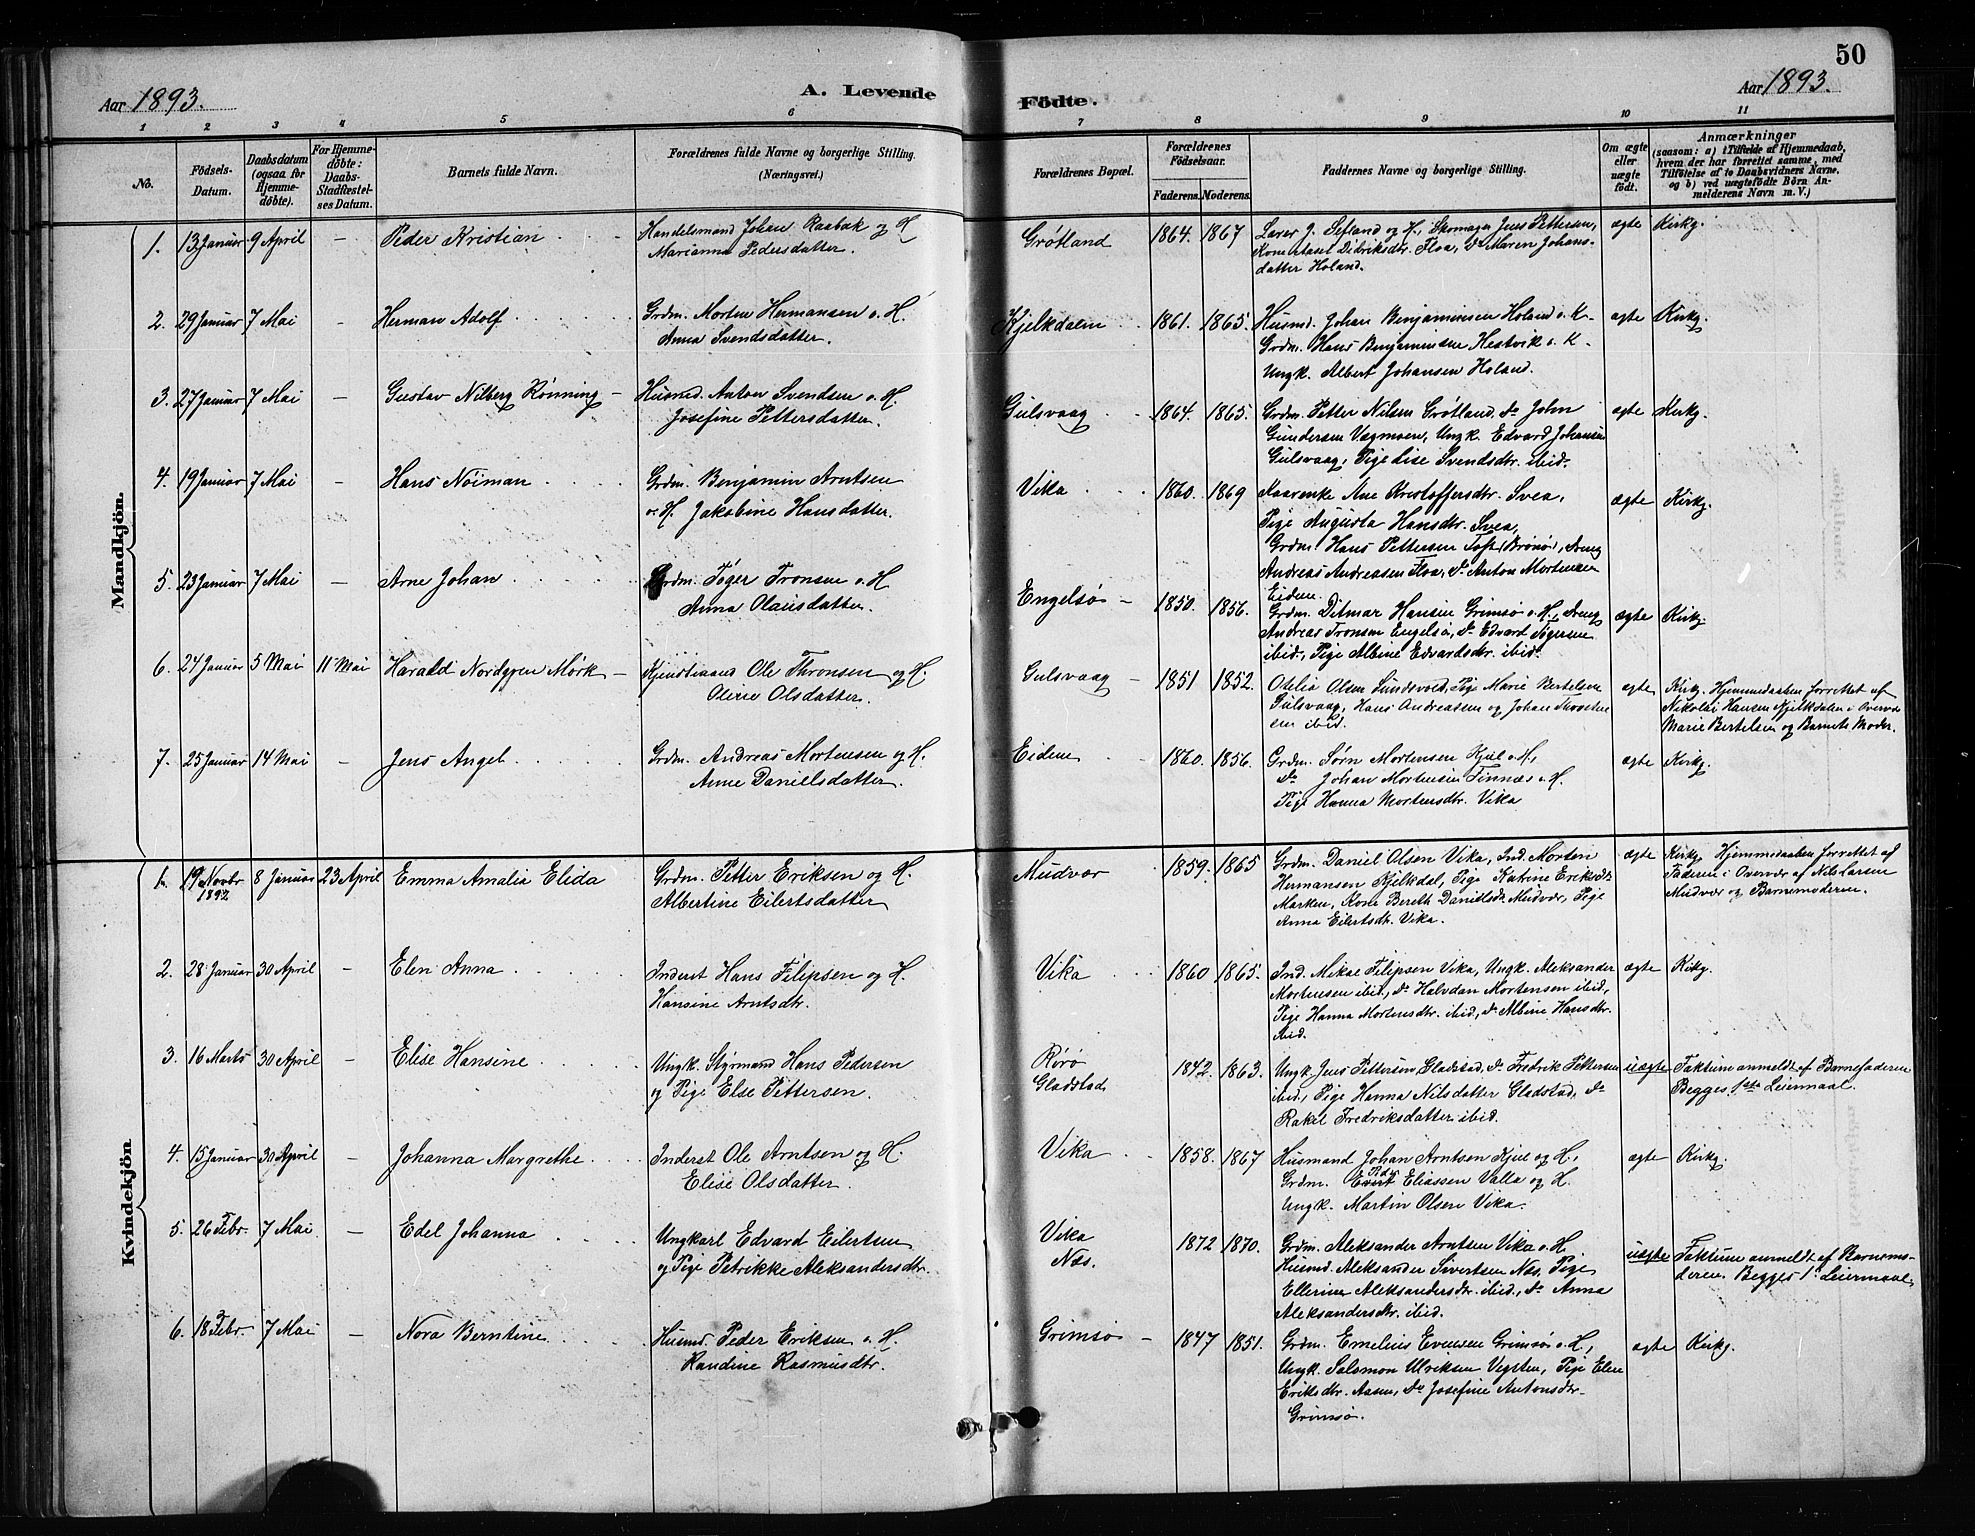 50
Aar 1893.
A. Levende
Födte.
Aar 1893.
1 2 3 4 5 6 7 8 9 10 11
No.
Födsels-Datum.
Daabsdatum (ogsaa for Hjemme-döbte).
For Hjemme-döbte: Daabs-Stadfæstel-ses Datum.
Barnets fulde Navn.
Forældrenes fulde Navne og borgerlige Stilling.
(Næringsvei.)
Forældrenes Bopæl.
Forældrenes Födselsaar.
Faderens. Moderens.
Faddernes Navne og borgerlige Stilling.
Om ægte eller uægte födt.
Anmærkninger
(saasom: a) i Tilfælde af Hjemmedaab,
hvem der har forrettet samme, med
Tilföielse af to Daabsvidners Navne,
og b) ved uægtefödte Börn An-
melderens Navn m. V.)
Mandkjön.
1. 13 Januar 9 April - Peder Kristian Handelsmand Johan Raabak og H Grøtland 1864. 1867 Lærer J. Sefland og H., Skomager Jens Pettersen, ægte Kirkg.
Marianna Pedersdatter. Kone Didriksdtr. Floa, Do Maren Johans-
datter Holand.
2. 29 Januar 7 Mai - Herman Adolf Grdm. Morten Hermansen o. H. Kjelkdalen 1861. 1865. Husmd. Johan Benjaminsen Holand o. K. ægte Kirkg.
Anna Svendsdatter. Grdm. Hans Benjaminsen Hestvik o. K.
Ungk. Albert Johansen Holand.
3. 27 Januar 7 Mai - Gustav Nilberg Rønning - Husmd. Anton Svendsen o. H. Gulsvaag 1864. 1865. Grdm. Petter Nilsen Grøtland, do John ægte Kirkg.
Josefine Pettersdatter. Gundersen Vægmoen, Ungk. Edvard Johansen
Gulsvaag, Pige Lise Svendsdtr. ibid.
4. 19 Januar 7 Mai - Hans Nöiman Grdm. Benjamin Arntsen Vika 1860. 1869 Kaarenke Ane Kristoffersdtr. Svea, ægte Kirkg.
o. H. Jakobine Hansdatter. Pige Augusta Hansdtr. Svea,
Grdm. Hans Pettersen Toft (Brönö), Dreng
Andreas Andreasen Floa, do Anton Mortensen
Eidem.
5. 23 Januar 7 Mai - Arne Johan Grdm. Töger Tronsen o. H Engelsø - 1850. 1856. Grdm. Ditmar Hansen Grimsø o. H., Dreng ægte Kirkg.
Anna Olausdatter. Andreas Tronsen Engelsø, do Edvart Tögersen
ibid., Pige Albine Edvardsdtr. ibid.
6. 24 Januar 5 Mai 11 Mai Harald Nordgren Mørk - Ole Thronsen og H. Gulsvaag - 1851 1852. Otelia Olsen Sundsvold, Pige Marie Bertelsen ægte Kirkg. Hjemmedaaben forrettet af
Oline Olsdatter. Gulsvaag, Hans Andreassen og Johan Nikolai Hansen Kjelkdalen i Overvær
ibid. Marie Bertelsen og Barnets Moder.
7. 25 Januar 14 Mai - Jens Angel Grdm. Andreas Mortensen og H. Eidem 1860. 1856. Grdm. Sørn Mortensen Kjul o. H., ægte Kirkg.
Anne Danielsdatter. do Johan Mortensen Tinnæs o. H.
Pige Hanna Mortensdtr. Vika
Kvindekjön
1. 19 Novbr 1892 8 Januar 23 April Emma Amalia Elida Grdm. Petter Eriksen og H. Mudvær 1859. 1865 Grdm. Daniel Olsen Vika, Ind. Morten ægte Kirkg. Hjemmedaaben forrettet af
Albertine Eilertsdatter Hermansen Kjelkdal, Pige Katrine Eriksdtr Faderen i Overvær af Nils Larsen
Marken, Kone Bereth Danielsdtr Mudvær, Pige Mudvær og Barnemoderen.
Anna Eilertsdtr. Vika.
2. 28 Januar 30 April - Elen Anna Inderst Hans Filipsen og H. Vika 1860 1865. Ind. Mikal Filipsen Vika, Ungk. Aleksander ægte Kirkg.
Hansine Arntsdtr. Mortensen ibid., do Halvdan Mortensen ibid.,
Pige Hanna Mortensdtr. ibid., do Albine Hansdtr.
ibid.
3. 16 Marts 30 April - Elise Hansine Ungk. Styrmand Hans Pedersen Rørø 1842. 1863. Ungk. Jens Pettersen Gladstad, do Fredrik Pettersen uægte Faktum anmeldt af Barnefaderen
og Pige Else Pettersen. Gladstad. ibid., Pige Hanna Nilsdatter Gladstad, do Begges 1ste Leiermaal.
Rakel Fredriksdatter ibid.
4. 15 Januar 30 April - Johanna Margrethe Inderst Ole Arntsen og H. Vika 1858. 1867 Husmand Johan Arntsen Kjul og H., ægte Kirkg.
Elise Olsdatter. Grdm. Peder Eliassen Valla og H.
Ungk. Martin Olsen Vika.
5. 26 Febr. 7 Mai - Edel Johanna Ungkarl Edvard Eilertsen Vika 1872 1870. Grdm. Aleksander Arntsen Vika o. H. uægte Faktum anmeldt af Barnemo-
og Pige Petrikke Aleksandersdtr. Næs. Husmd. Aleksander Sivertsen Næs. Pige deren. Begges 1ste Leiermaal.
Aleksandersdtr. ibid., do Anna
Aleksandersdtr. ibid.
6. 18 Febr. 7 Mai - Nora Berntine Husmd. Peder Eriksen o. H. Grimsø - 1847 1851. Grdm. Emelius Evensen Grimsø o. H., ægte Kirkg.
Randine Rasmusdtr. Ungk. Salomon Ulriksen Vegsten, Pige Elen
Eriksdtr. Aasen, do Josefine Antonsdtr.
Grimsø.